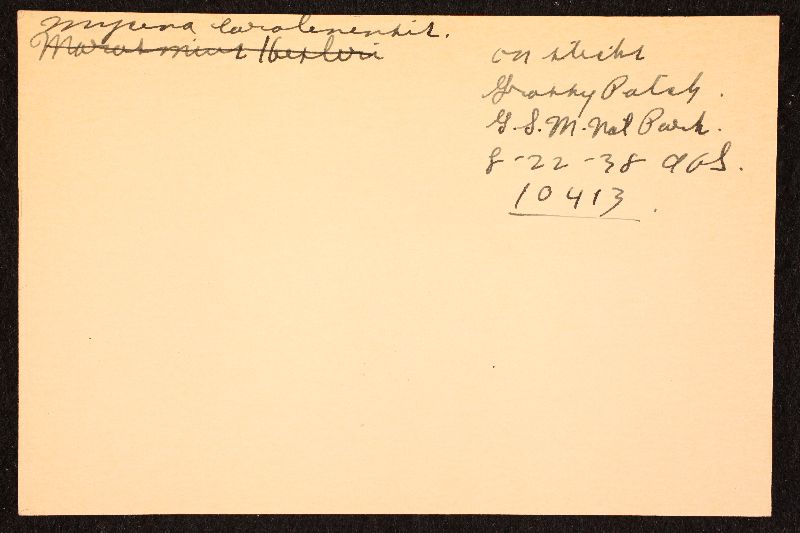 Mycena carolinensis.
Marasmius Hesleri
on sticks
Grassy Patch.
G.S.M. Nat Park.
8-22-38 AHS.
10413.